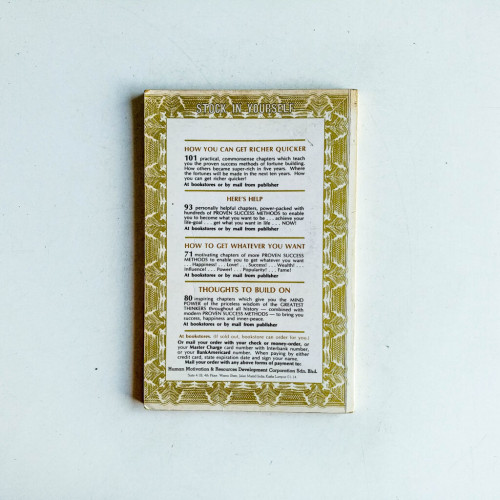 STOCK IN YOURSELF
HOW YOU CAN GET RICHER QUICKER
101 practical, commonsense chapters which teach
you the proven success methods of fortune building.
How others became super-rich in five years. Where
the fortunes will be made in the next ten years. How
you can get richer quicker!
At bookstores or by mail from publisher
HERE'S HELP
93 personally helpful chapters, power-packed with
hundreds of PROVEN SUCCESS METHODS to enable
you to become what you want to be . . . achieve your
life-goal . . . get what you want in life . . . NOW!
At bookstores or by mail from publisher
HOW TO GET WHATEVER YOU WANT
71 motivating chapters of more PROVEN SUCCESS
METHODS to enable you to get whatever you want
. . . Happiness! . . . Love! . . . Success! . . . Wealth! . . .
Influence! . . . Power! . . . Popularity! . . . Fame!
At bookstores or by mail from publisher
THOUGHTS TO BUILD ON
80 inspiring chapters which give you the MIND
POWER of the priceless wisdom of the GREATEST
THINKERS throughout all history — combined with
modern PROVEN SUCCESS METHODS — to bring you
success, happiness and inner-peace.
At bookstores or by mail from publisher
At bookstores. (If sold out, bookstore can order for you.)
Or mail your order with your check or money-order, or
your Master Charge card number with Interbank number,
or your BankAmericard number. When paying by either
credit card, state expiration date and sign your name.
Mail your order with any above forms of payment to:
Human Motivation & Resources Development Corporation Sdn. Bhd.